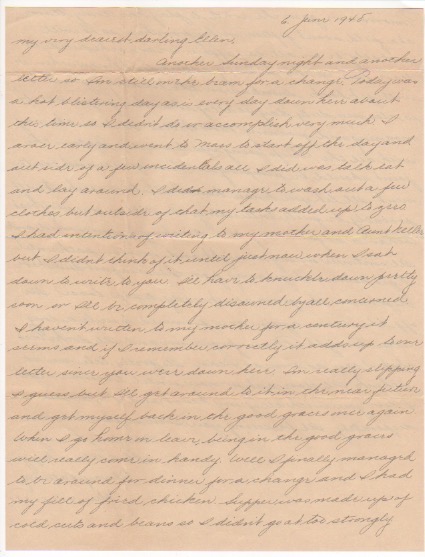 6 June 1945
My very dearest darling Ellen,
Another Sunday night and another
letter so I'm still on the beam for a change. Today was
a hot blistering day as is every day down here about
this time so I didn't do or accomplish very much. I
arose early and went to Mass to start off the day and
outside of a few incidentals all I did was talk eat
and lay around. I did manage to wash out a few
clothes but outside of that my tasks added up to zero
I had intentions of writing to my mother and Aunt
but I didn't think of it until just now when I sat
down to write to you. I'll have to knuckle down pretty
soon or I'll be completely disowned by all concerned
I haven't written to my mother for a century it
seems and if I remember correctly it adds up to one
letter since you were down here. I'm really slipping
I guess but I'll get around to it in the near future
and get myself back in the good graces once again
When I go home on leave, being in the good graces
will really come in handy. Well I finally managed
to be around for dinner for a change and I had
my fill of fried chicken. Supper was made up of
cold cuts and beans so I didn't go at it too strongly